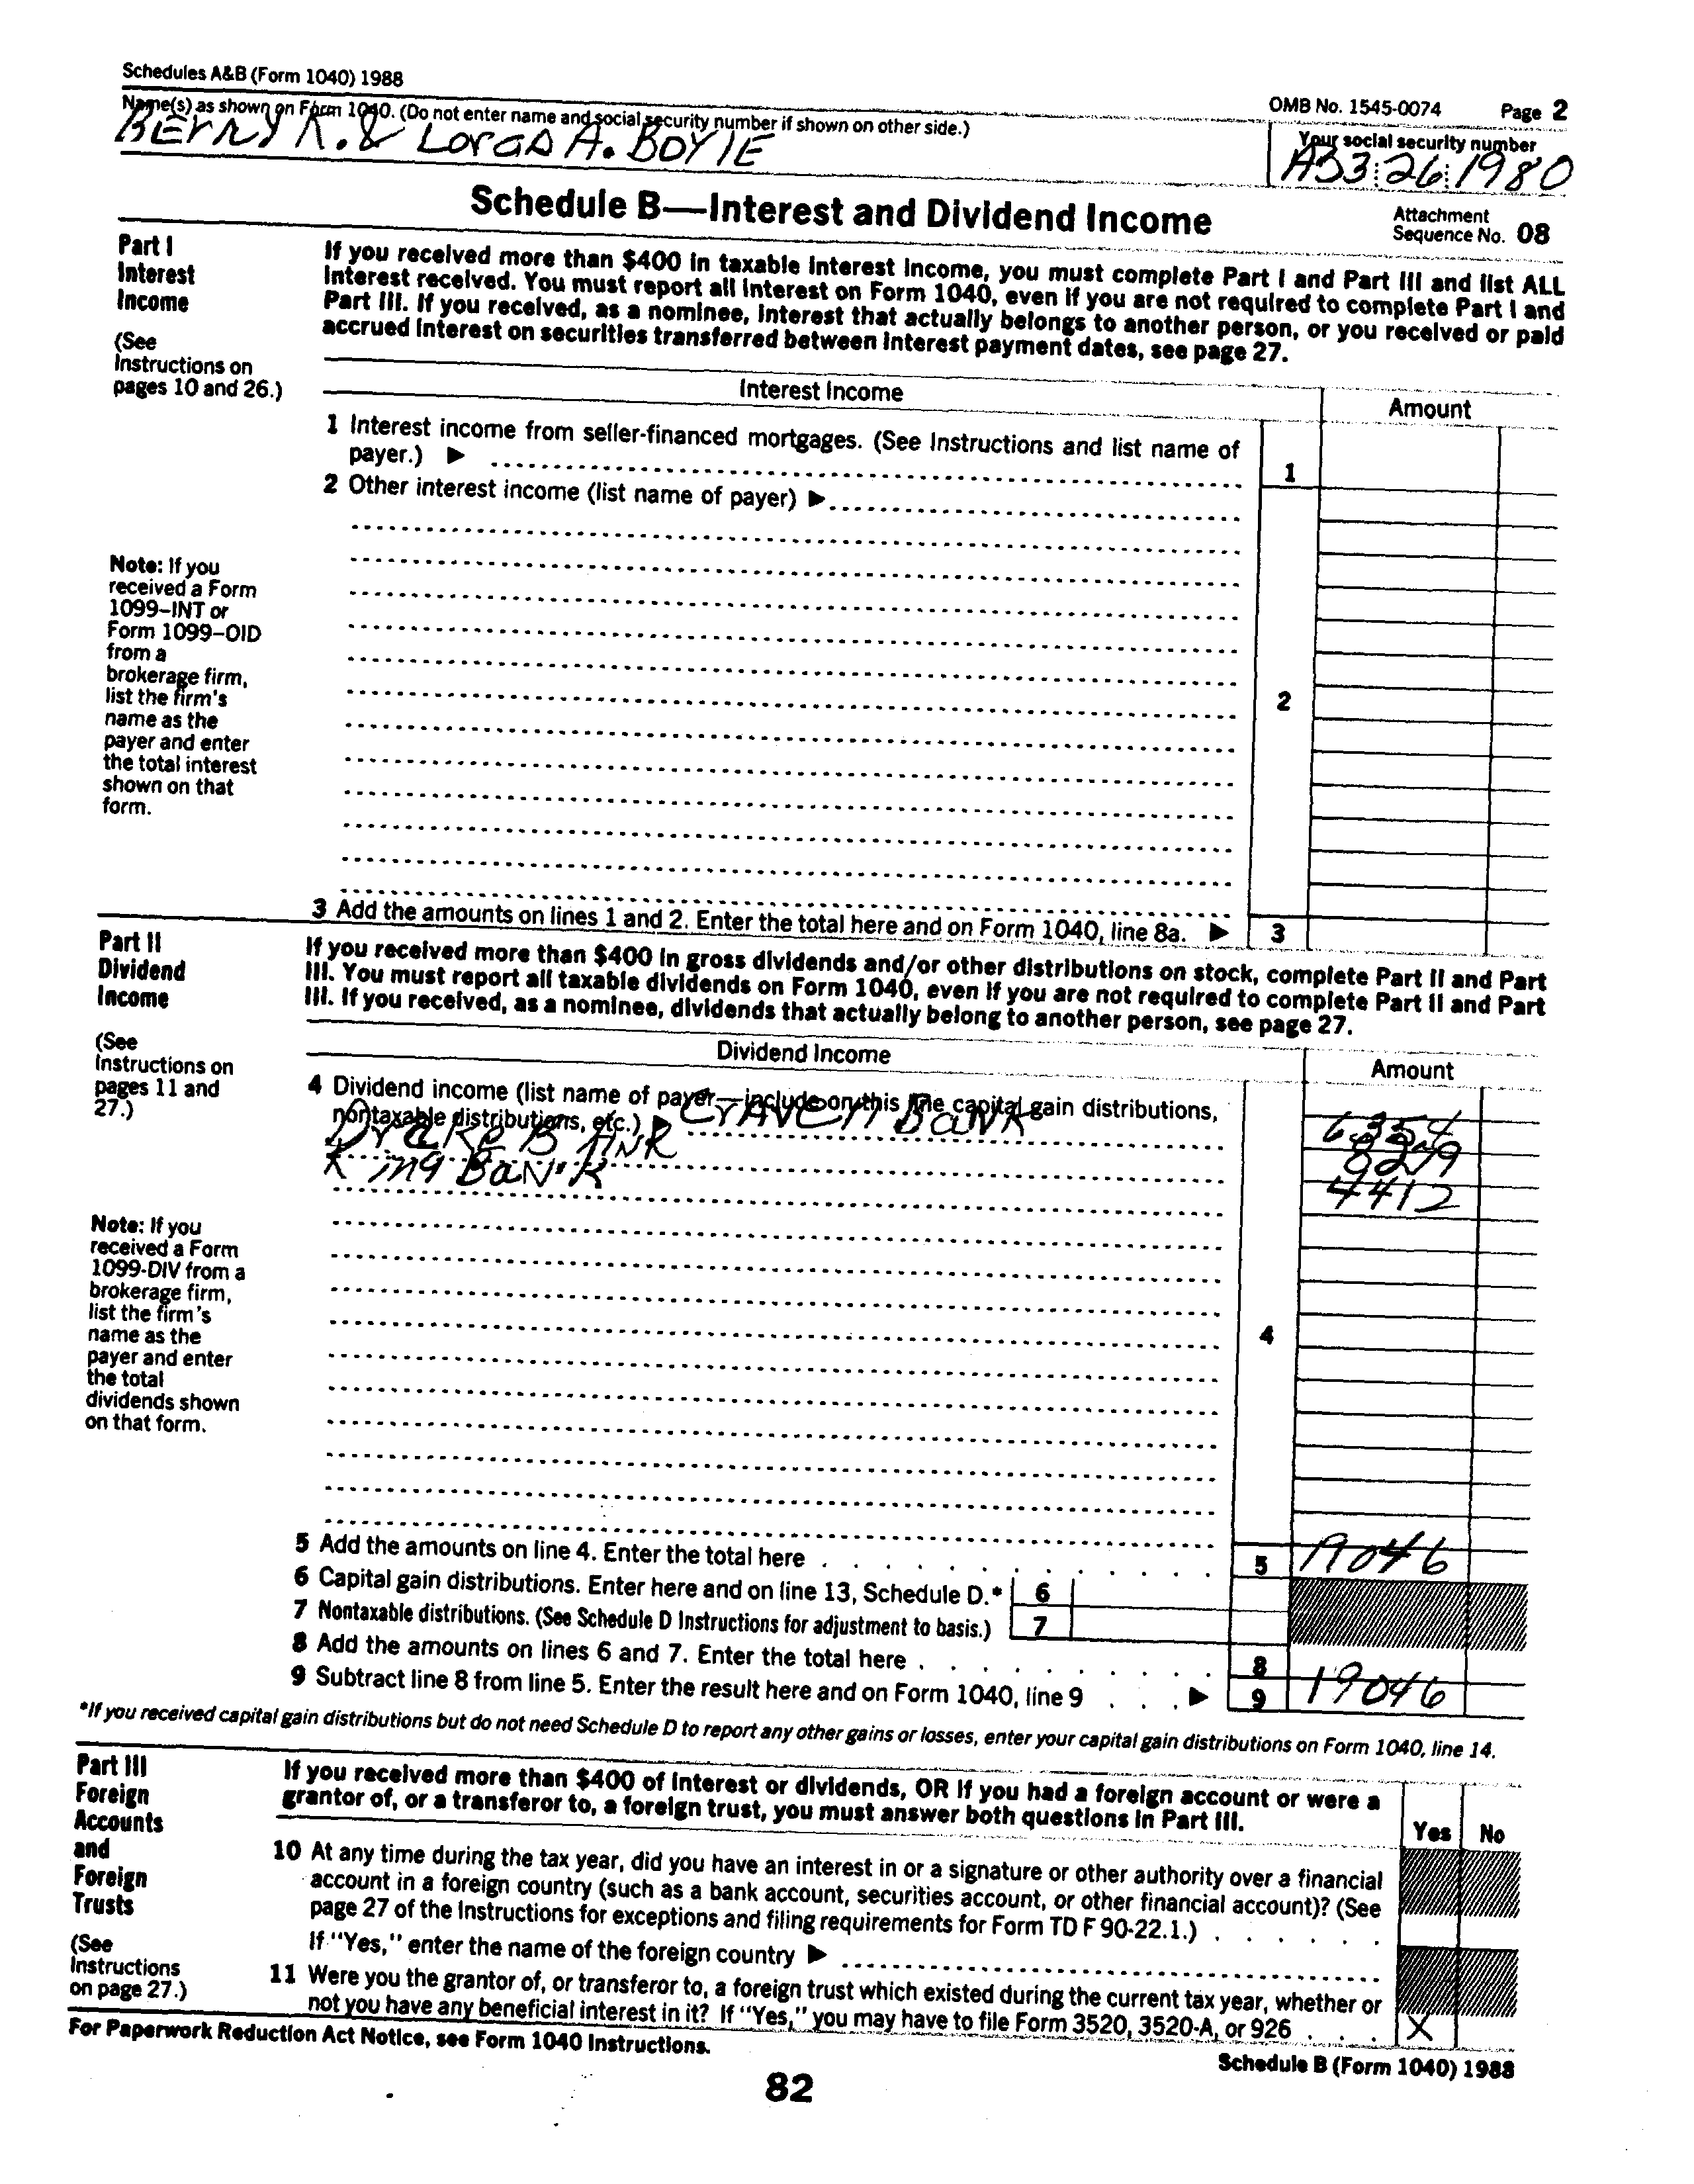 Schedules A&B (Form 1040) 1988
OMB No. 1545-0074 Page 2
Name(s) as shown on Form 1040. (Do not enter name and social security number if shown on other side.)
Your social security number
& A. BOYIE
A33 26 1980
Schedule B—Interest and Dividend Income
Attachment
Sequence No. 08
Part I
Interest
Income
(See
Instructions on
pages 10 and 26.)
If you received more than $400 in taxable interest income, you must complete Part I and Part III and list ALL
interest received. You must report all interest on Form 1040, even if you are not required to complete Part I and
Part III. If you received, as a nominee, interest that actually belongs to another person, or you received or paid
accrued interest on securities transferred between interest payment dates, see page 27.
Interest Income
Amount
1 Interest income from seller-financed mortgages. (See Instructions and list name of
payer.) ▶
1
2 Other interest income (list name of payer) ▶
Note: If you
received a Form
1099–INT or
Form 1099–OID
from a
brokerage firm,
list the firm's
name as the
payer and enter
the total interest
shown on that
form.
2
3 Add the amounts on lines 1 and 2. Enter the total here and on Form 1040, line 8a. ▶ 3
Part II
Dividend
Income
(See
Instructions on
pages 11 and
27.)
If you received more than $400 in gross dividends and/or other distributions on stock, complete Part II and Part
III. You must report all taxable dividends on Form 1040, even if you are not required to complete Part II and Part
III. If you received, as a nominee, dividends that actually belong to another person, see page 27.
Dividend Income
Amount
4 Dividend income (list name of payer—include on this line capital gain distributions,
nontaxable distributions, etc.) ▶ CrAVen BaNK 6354
DraKe BANK
King BaNK 4412
Note: If you
received a Form
1099-DIV from a
brokerage firm,
list the firm's
name as the
payer and enter
the total
dividends shown
on that form.
4
5 Add the amounts on line 4. Enter the total here 5 19046
6 Capital gain distributions. Enter here and on line 13, Schedule D.* 6
7 Nontaxable distributions. (See Schedule D Instructions for adjustment to basis.) 7
8 Add the amounts on lines 6 and 7. Enter the total here 8
9 Subtract line 8 from line 5. Enter the result here and on Form 1040, line 9 ▶ 9 19046
*If you received capital gain distributions but do not need Schedule D to report any other gains or losses, enter your capital gain distributions on Form 1040, line 14.
Part III
Foreign
Accounts
and
Foreign
Trusts
(See
Instructions
on page 27.)
If you received more than $400 of interest or dividends, OR if you had a foreign account or were a
grantor of, or a transferor to, a foreign trust, you must answer both questions in Part III.
Yes No
10 At any time during the tax year, did you have an interest in or a signature or other authority over a financial
account in a foreign country (such as a bank account, securities account, or other financial account)? (See
page 27 of the Instructions for exceptions and filing requirements for Form TD F 90-22.1.)
If "Yes," enter the name of the foreign country ▶
11 Were you the grantor of, or transferor to, a foreign trust which existed during the current tax year, whether or
not you have any beneficial interest in it? If "Yes," you may have to file Form 3520, 3520-A, or 926 X
For Paperwork Reduction Act Notice, see Form 1040 Instructions.
Schedule B (Form 1040) 1988
82